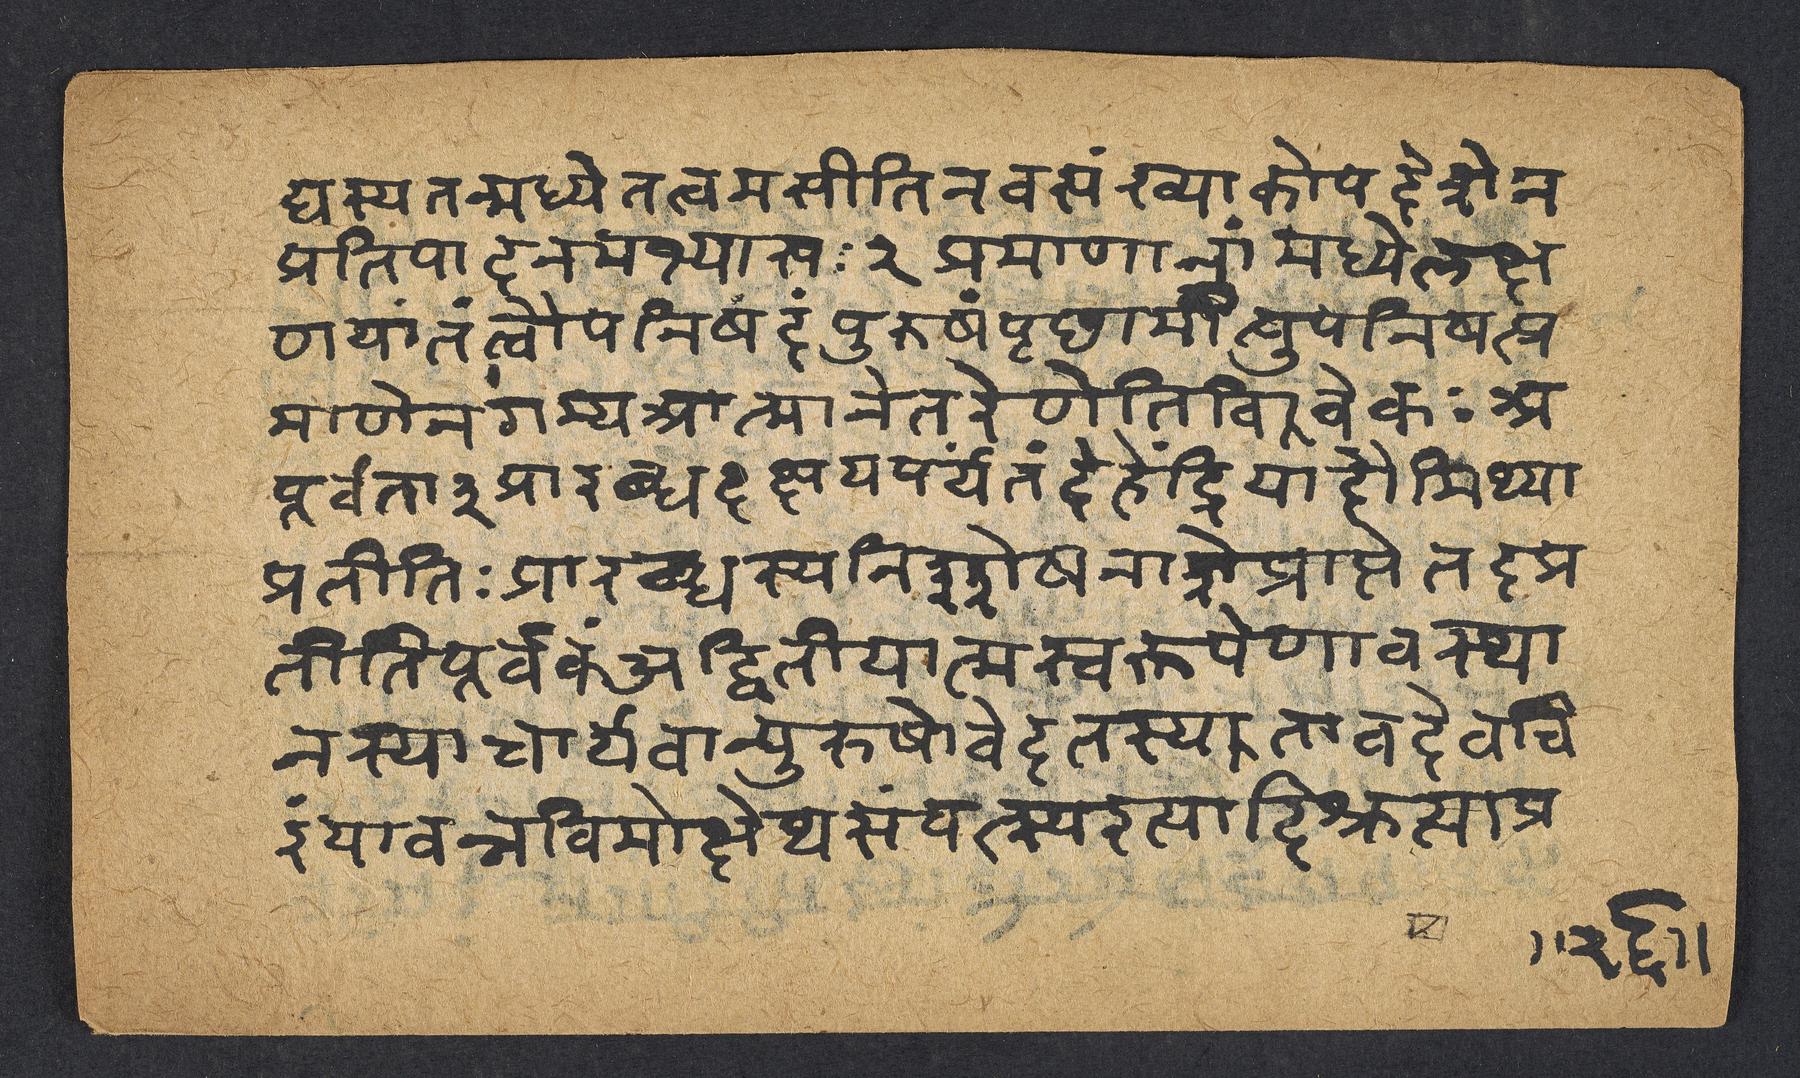 द्यस्य तन्मध्ये तत्वमसीति नवसंख्याकोपदेशेन
प्रतिपादनमभ्यासः २ प्रमाणानां मध्ये लक्ष
णयां तं त्वौपनिषदं पुरुषं पृछामीत्युपनिषत्प्र
माणेनं गम्य आत्मा नेतरेणेति विवेकः अ
पूर्वता ३ प्रारब्धक्षयपर्यंतं देहेंद्रियादौ मिथ्या
प्रतीतिः प्रारब्धस्य निश्शेष नाशे प्राप्ते तदप्र
तीतिपूर्वकं अद्वितीयात्मस्वरूपेणावस्था
नस्याचार्यवान्पुरुषो वेद तस्य तावदेव चि
रं यावन्न विमोक्षेथ संपत्स्य इत्यादि श्रुत्या प्र
॥२६॥